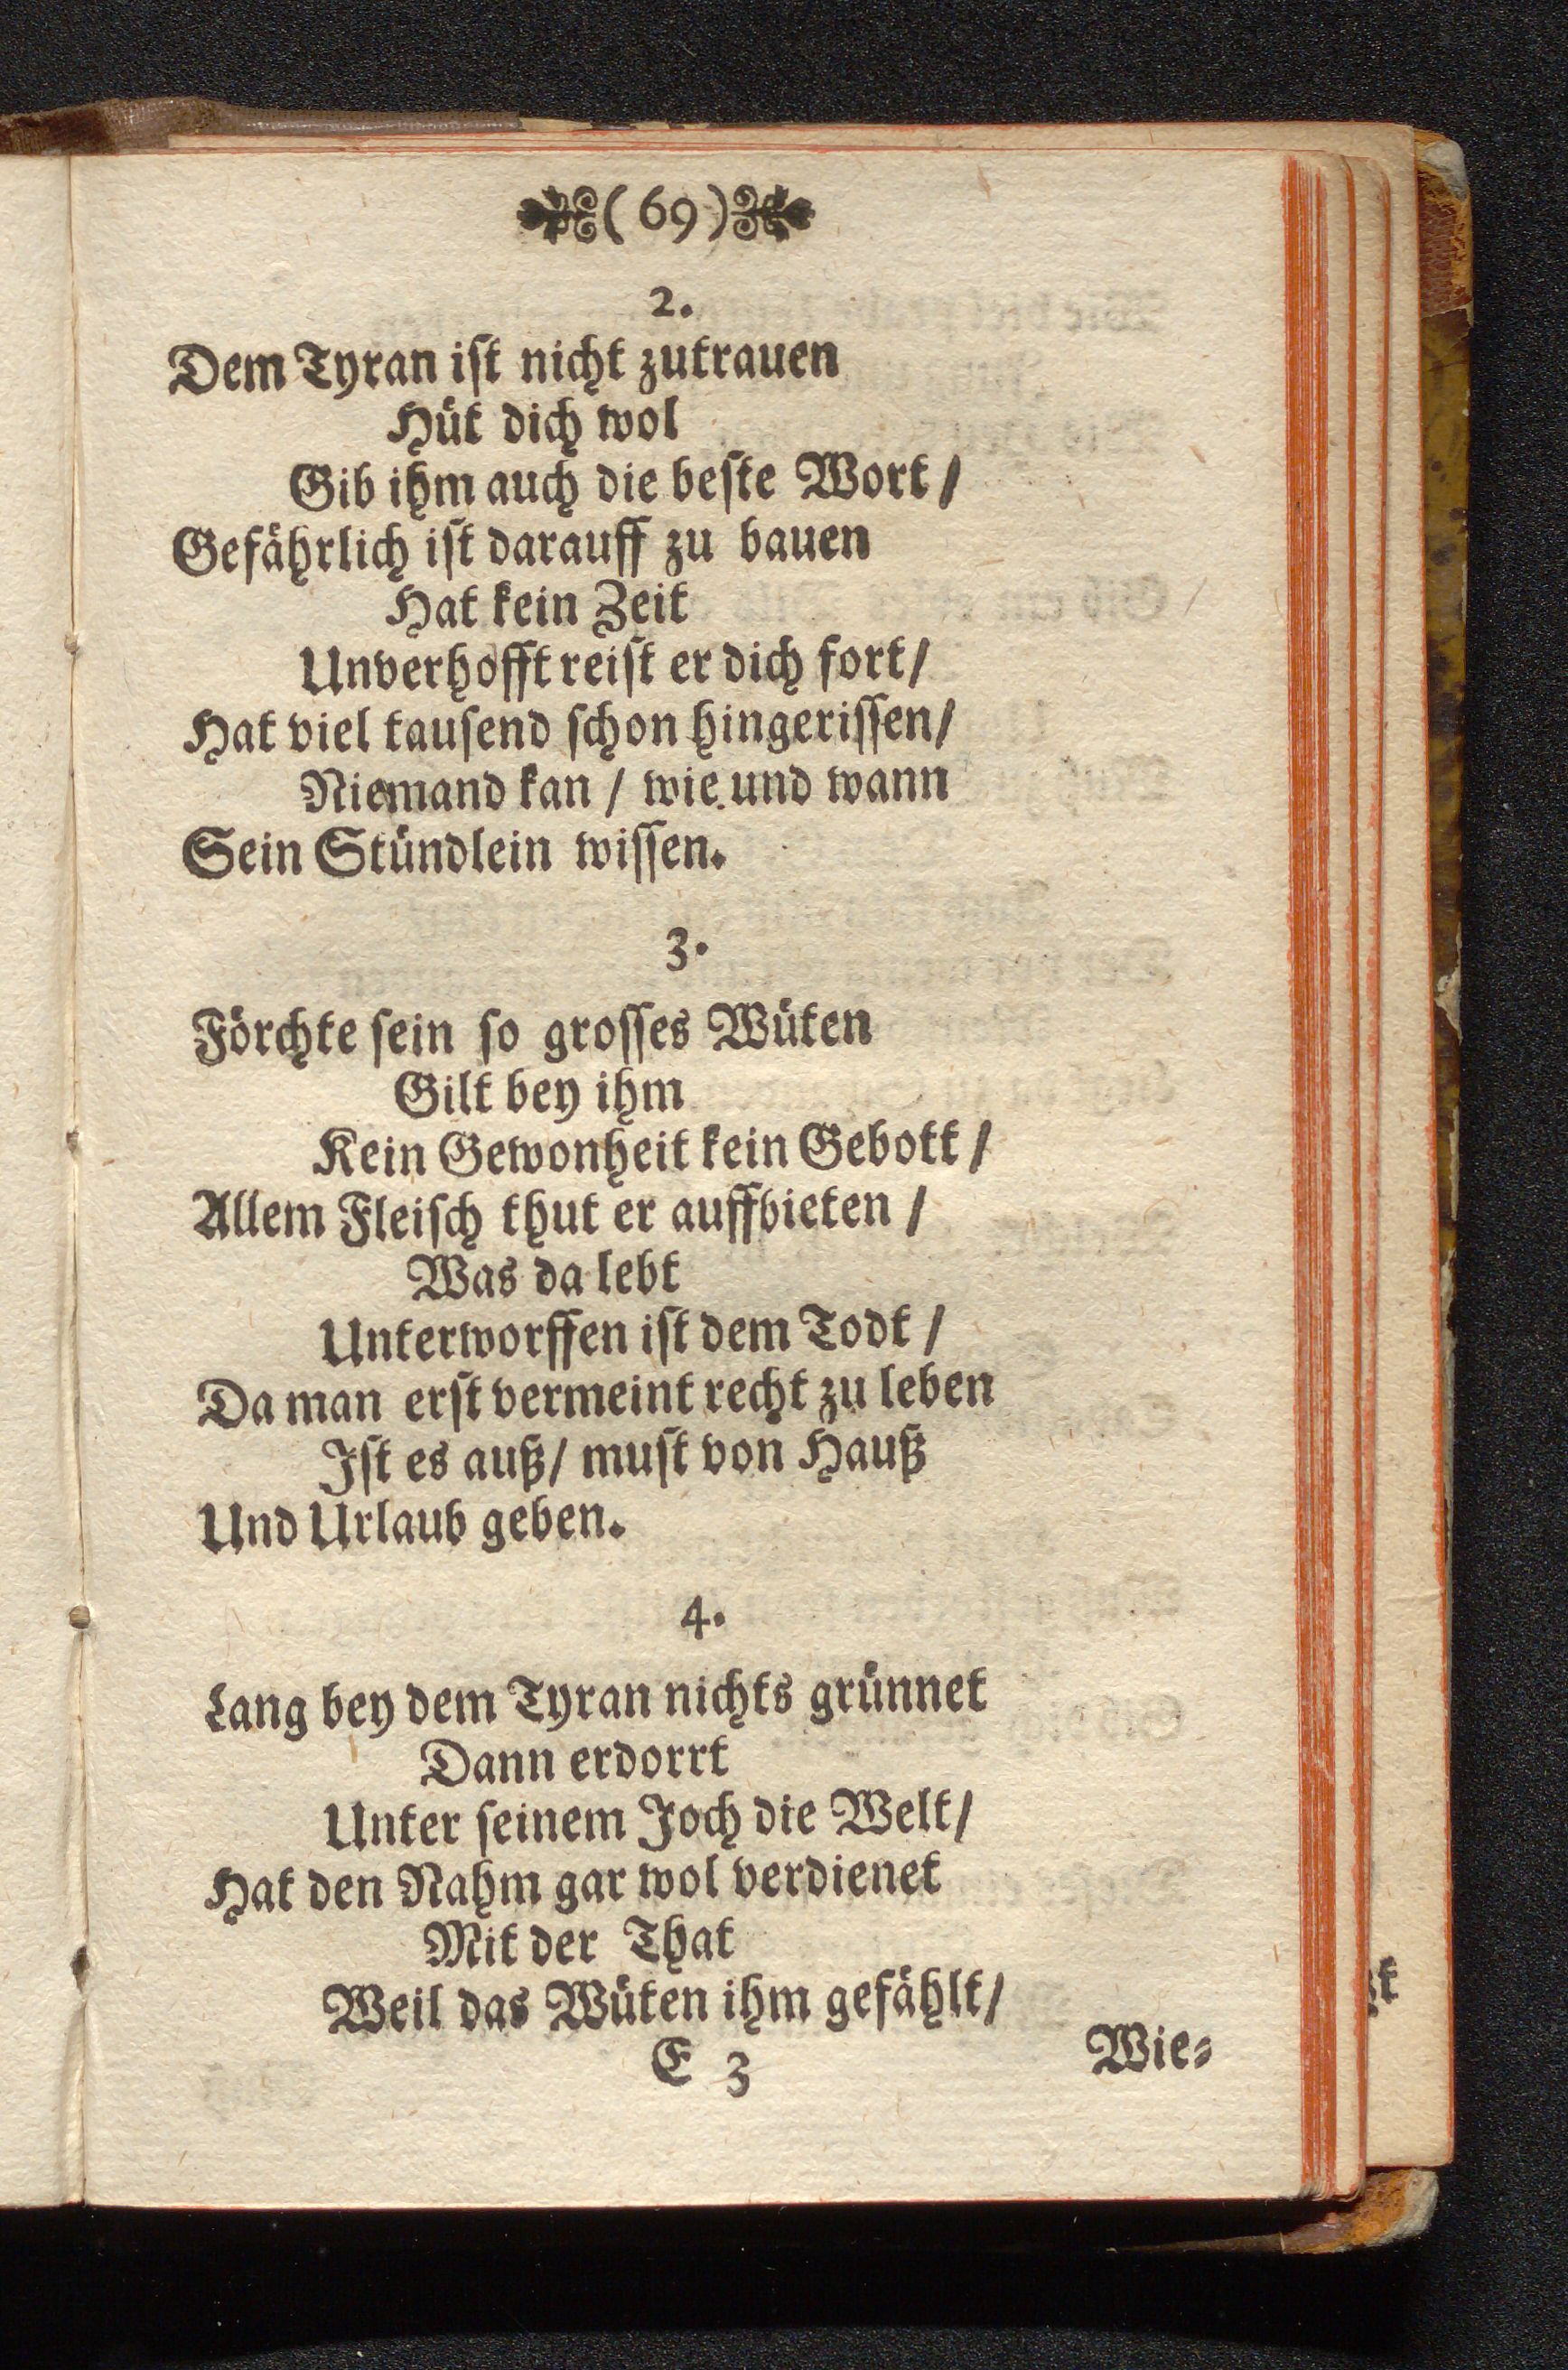 (69)
2.
Dem Tyran ist nicht zutrauen
Hüt dich wol
Gib ihm auch die beste Wort /
Gefährlich ist darauff zu bauen
Hat kein Zeit
Unverhofft reist er dich fort /
Hat viel tausend schon hingerissen /
Niemand kan / wie und wann
Sein Stündlein wissen.
3.
Förchte sein so grosses Wüten
Gilt bey ihm
Kein Gewonheit kein Gebott /
Allem Fleisch thut er auffbieten /
Was da lebt
Unterworffen ist dem Todt /
Da man erst vermeint recht zu leben
Ist es auß / must von Hauß
Und Urlaub geben.
4.
Lang bey dem Tyran nichts grünnet
Dann erdorrt
Unter seinem Joch die Welt /
Hat den Nahm gar wol verdienet
Mit der That
Weil das Wüten ihm gefählt /
E 3
Wie-